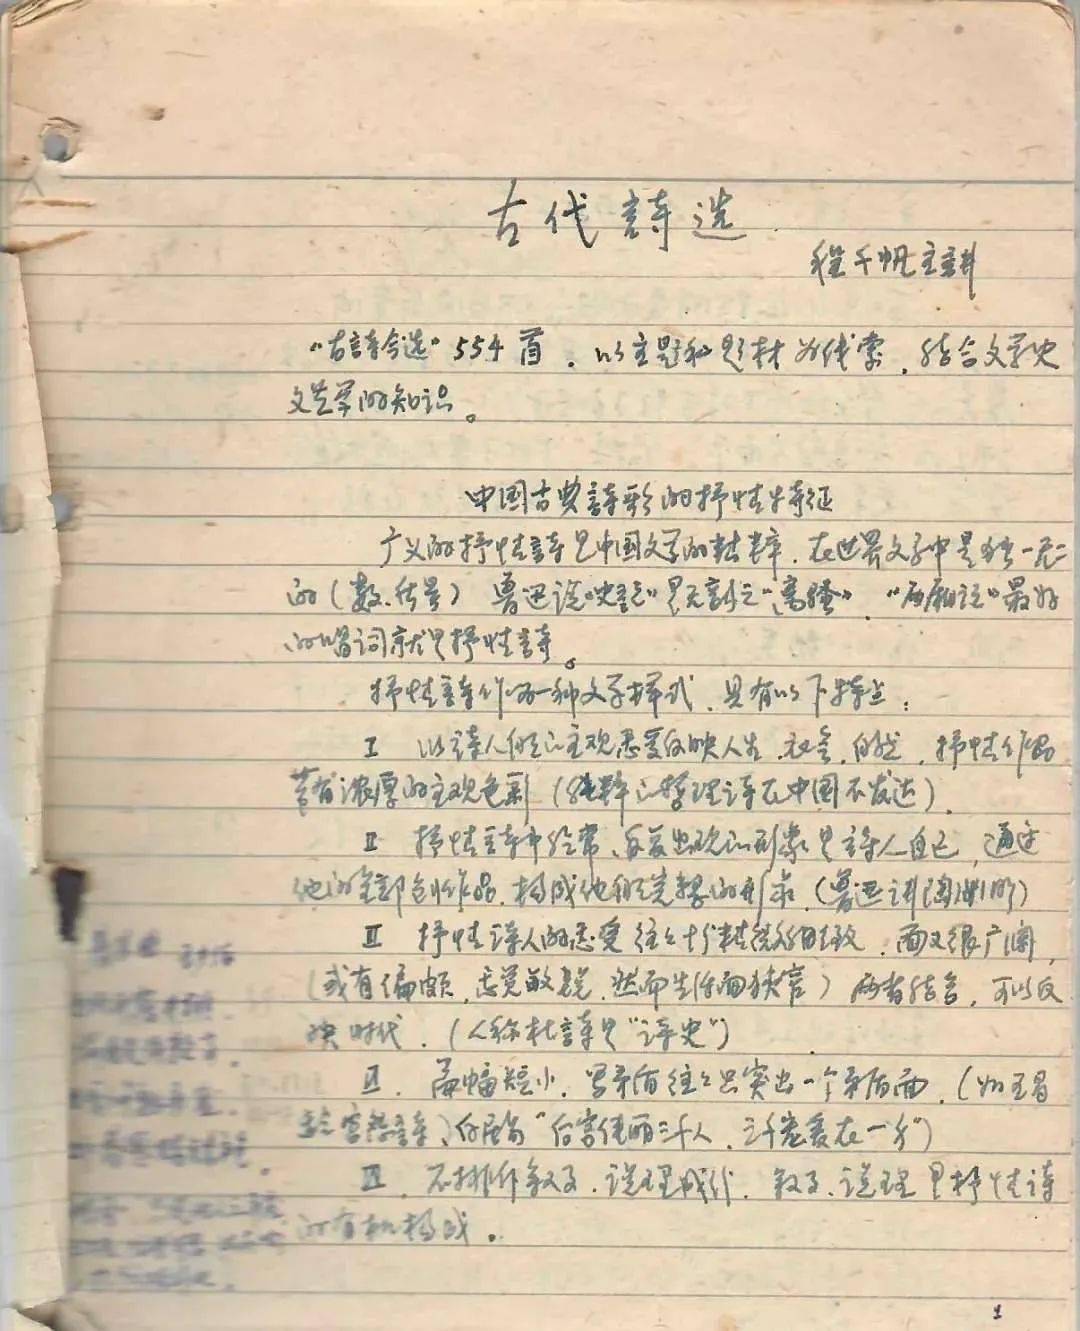 古代詩选
程千帆主講
“古詩今选”554首，以主题和题材为线索，结合文学史
文学的知识。
中国古典詩歌的抒情特征
广义的抒情詩是中国文学的精粹，在世界文学中是独一无二
的（数、质量）鲁迅说“史记”是无韵之“离骚”，“西厢记”最好
的唱词就是抒情詩。
抒情詩作为一种文学样式，具有以下特点：
I 以诗人的主观感受反映人生、社会、自然，抒情作品
常有浓厚的主观色彩（纯粹的哲理诗在中国不发达）。
II 抒情诗中经常、反复出现的形象是诗人自己，通过
他的全部创作品，构成他的完整的形象（鲁迅讲陶渊明）
III 抒情诗人的感受往往十分精微细致，面又很广阔，
（或有偏颇，感觉敏锐，然而生活面狭窄）两者结合，可以反
映时代。（人称杜詩是“诗史”）
篇幅短小，写矛盾往往只突出一个矛盾面，（如王昌
龄宫怨詩、“后宫佳丽三千人，三千宠爱在一身”）
不排斥叙事、说理成份，叙事、说理是抒情诗
的有机构成。
1